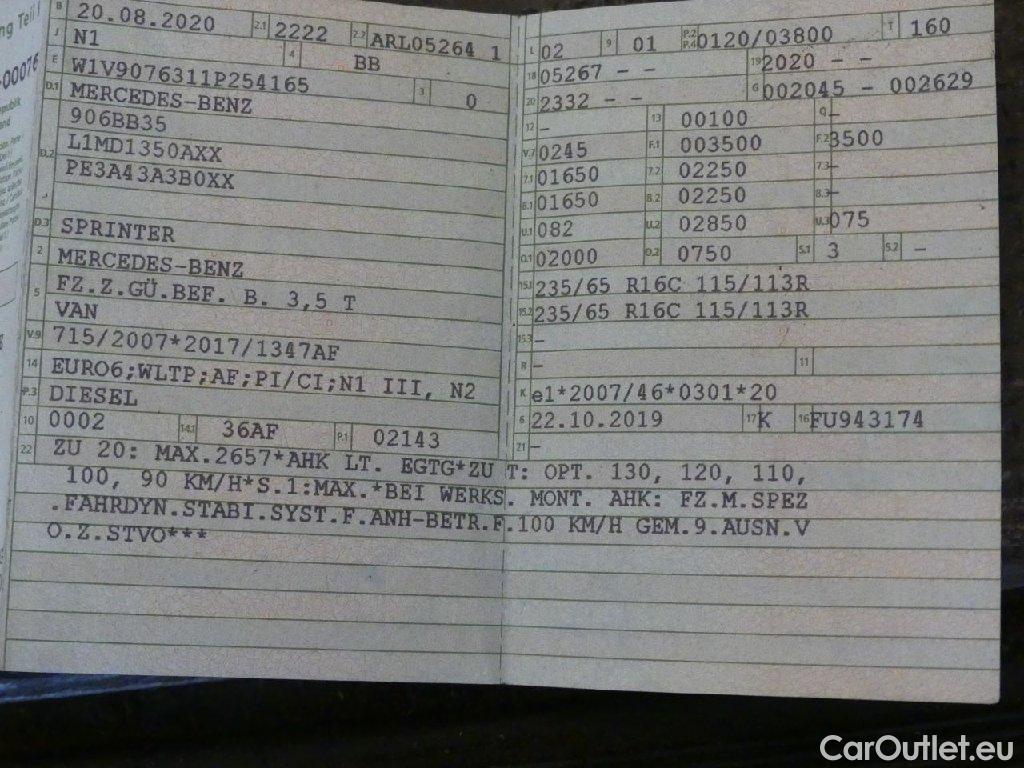 ng Teil I
-00076
B 20.08.2020 2.1 2222 2.2 ARL05264 1
J N1 4 BB
E W1V9076311P254165 3 0
D.1 MERCEDES-BENZ
906BB35
D.2 L1MD1350AXX
PE3A43A3B0XX
D.3 SPRINTER
2 MERCEDES-BENZ
5 FZ.Z.GÜ.BEF. B. 3,5 T
VAN
V.9 715/2007*2017/1347AF
14 EURO6;WLTP;AF;PI/CI;N1 III, N2
P.3 DIESEL
10 0002 14.1 36AF P.1 02143
L 02 9 01 P.2 P.4 0120/03800 T 160
18 05267 - - 19 2020 - -
20 2332 - - G 002045 - 002629
12 - 13 00100 Q -
V.7 0245 F.1 003500 F.2 3500
7.1 01650 7.2 02250 7.3 -
8.1 01650 8.2 02250 8.3 -
U.1 082 U.2 02850 U.3 075
O.1 02000 O.2 0750 S.1 3 S.2 -
15.1 235/65 R16C 115/113R
15.2 235/65 R16C 115/113R
15.3 -
R 11
K e1*2007/46*0301*20
6 22.10.2019 17 K 16 FU943174
21 -
22 ZU 20: MAX.2657*AHK LT. EGTG*ZU T: OPT. 130, 120, 110,
100, 90 KM/H*S.1:MAX.*BEI WERKS. MONT. AHK: FZ.M.SPEZ
.FAHRDYN.STABI.SYST.F.ANH-BETR.F.100 KM/H GEM.9.AUSN.V
O.Z.STVO***
CarOutlet.eu